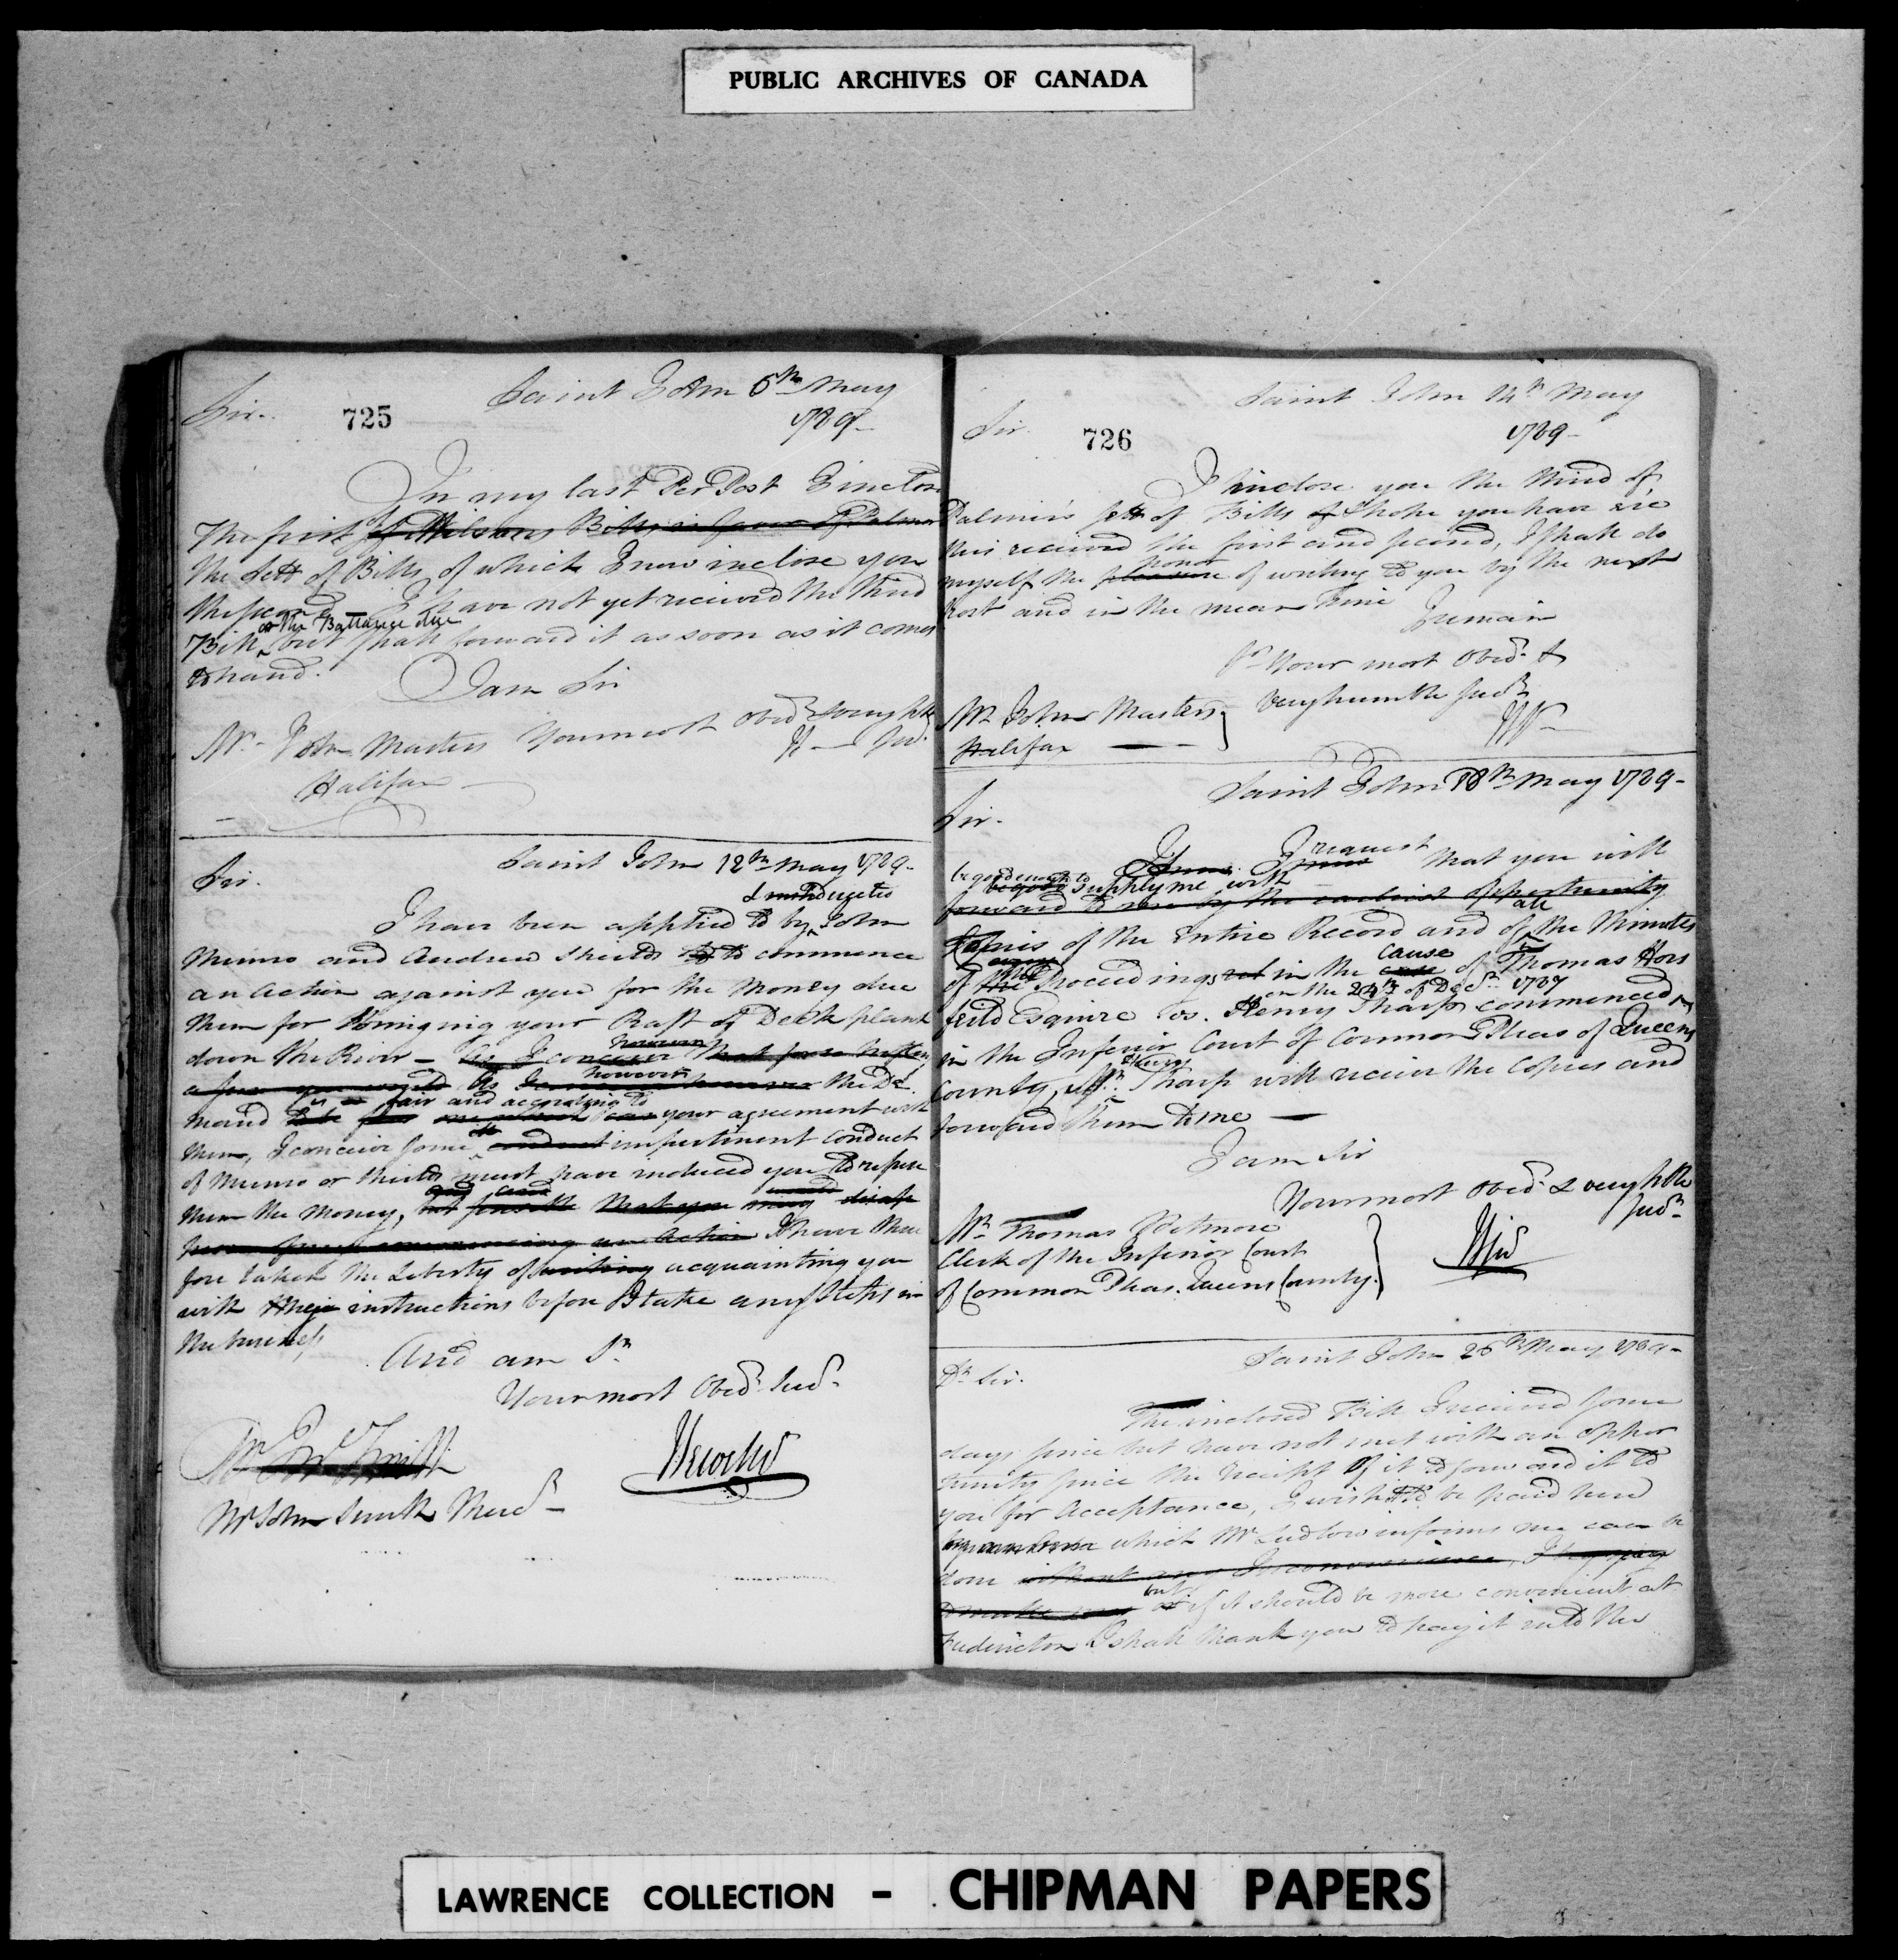 PUBLIC ARCHIVES OF CANADA
Saint John 5th May
Sir. 725 1789-
In my last Per Post I inclose
The first of Wilsons Bills in favor of Palmer
the Sett of Bills of which I now inclose you
the second - I have not yet received the third
or the Ballance due
Bill but shall forward it as soon as it comes
to hand.
I am Sir
Your most Obed &
Mr John Masters
Halifax
Saint John 12th May 1789-
Sir.
I have been applied to by John
Munro and Andrew Shields to commence
an Action against you for the Money due
them for bringing your Raft of Deck plank
down the River - As I conceive that for so trifling
however
the De
is fair and according to
mand your agreement with
them, I conceive some impertinent conduct
of Munro or Shields must have induced you to refuse
them the Money,
commencing an Action I have there
fore taken the Liberty of writing acquainting you
with their instructions before I take any Steps in
the business
And am Sr
Your most Obed Serv
Mr Jno Smith
Mr John Smith
Saint John 14th May
Sir. 726 1789-
I inclose you the third of
Palmer's sett of Bills I hope you have ere
this received the first and second, I shall do
honor
myself the pleasure of writing to you by the next
Post and in the mean Time
I remain
Sr Your most Obed &
very humble Serv
Mr John Masters
Halifax
Saint John 18th May 1789-
Sir.
request
I that you will
be good enough to
supply me with
forward to me by the earliest Opportunity
all
Copies of the Entire Record and of the Minutes
cause
of the Proceedings in the case of Thomas Hors
on the 24th of Decr 1787
feild Esquire vs. Henry Tharp commenced
in the Inferior Court of Common Pleas of Queens
Henry
County, Mr Tharp will receive the Copies and
forward them to me -
I am Sir
Your most Obed & very hble
Serv
Mr Thomas Wetmore
Clerk of the Inferior Court
of Common Pleas. Queens County.
Saint John 25th May 1789-
Dr Sir.
The inclosed Bill I received some
days since but have not met with an Oppor
tunity since the receipt of it to forward it to
you for Acceptance, I wish it to be paid here
which Mr Ludlow informs me can be
done without any Inconvenience, I beg you
but
to make if it should be more convenient at
Fredericton I shall thank you to pay it into the
LAWRENCE COLLECTION - CHIPMAN PAPERS